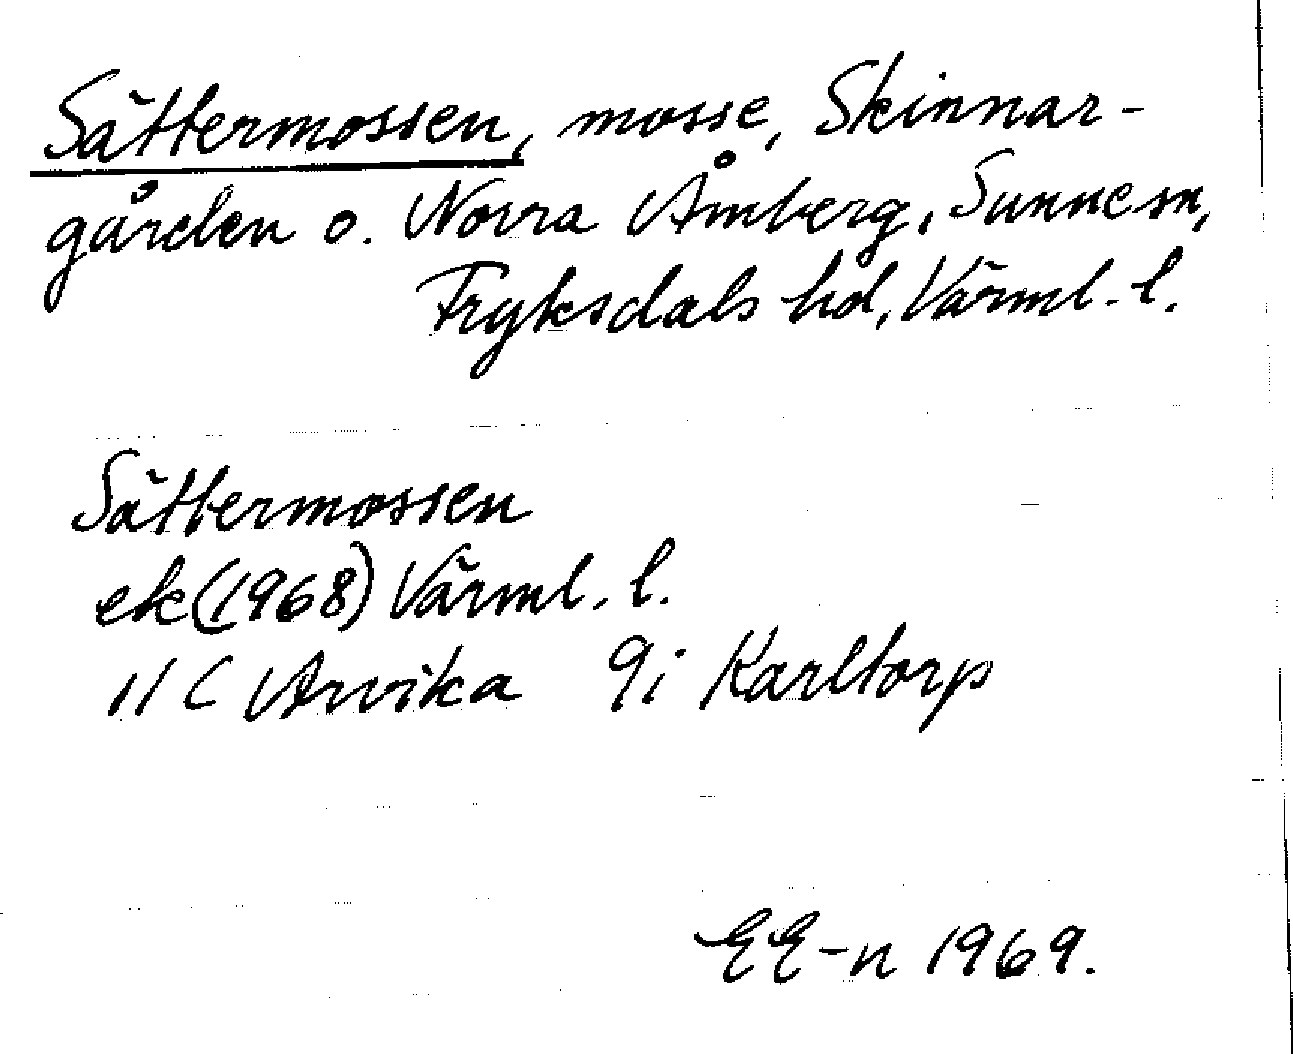 Sättermossen, mosse, Skinnar-
gården o. Norra Åmberg, Sunne sn,
Fryksdals hd, Värml. l.
Sättermossen
ek (1968) Värml. l.
11 C Arvika 9i Karltorp
EE-n 1969.